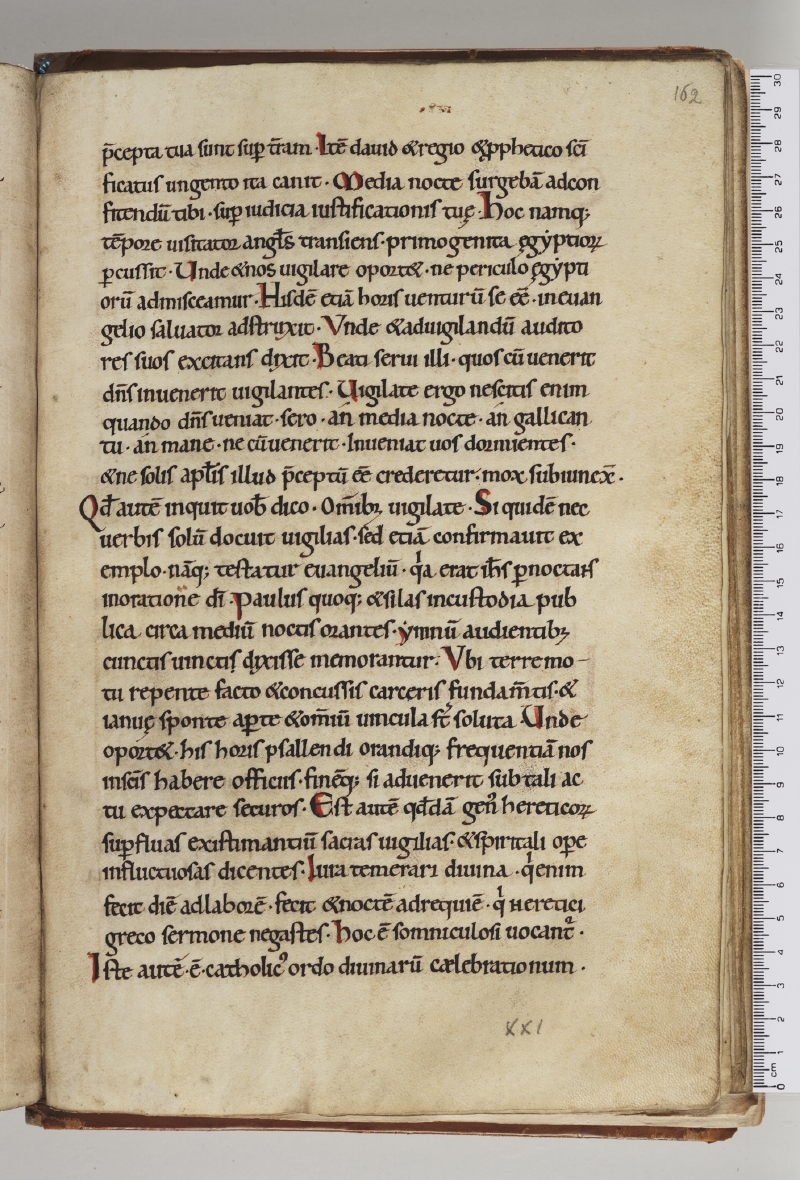 162
p̄cepta tua sunt sup̱ t̄ram · Itē dauid & regio & ꝓphetico sc̄i
ficatus ungento ita canit · Media nocte surgebā ad con
fitendū tibi · sup̱ iudicia iustificationis tuę · Hoc namq;
tēpore uisitator angl̄s transiens · primogenita ęgyptioꝝ
ꝑcussit · Unde & nos uigilare oport& · ne periculo ęgypti
orū admisceamur · Hisdē etiā horis uenturū se eē · in euan
gelio saluator adstruxit · Vnde & aduigilandū audito
res suos excitans dixit · Beati serui illi · quos cū uenerit
dn̄s inuenerit uigilantes · Uigilate ergo nescitis enim
quando dn̄s ueniat · sero · an media nocte · an gallican
tu · an mane · ne cū uenerit · Inueniat uos dormientes ·
& ne solis apl̄is illud p̄ceptū eē crederetur · mox subiunex̄ ·
Qd̄ autē inquit uob̄ dico · Om̄ibꝫ uigilate · Si quidē nec
uerbis solū docuit uigilias · sed etiā confirmauit ex
emplo · nāq; testatur euangeliū · qͥa erat ih̄s ꝑnoctans
in oratione dī · Paulus quoq; & silas in custodia pub
lica circa mediū noctis orantes · ymnū audientibꝫ
cunctis uinctis dixisse memorantur · Vbi terremo-
tu repente facto & concussis carceris fundam̄tis · &
ianuę sponte aꝑte & om̄iū uincula st̄ soluta Unde
oport& · his horis psallendi orandiq; frequentiā nos
in scīs habere officiis · finēq; si aduenerit sub tali ac
tu expectare securos · Est autē qd̄dā gen᾽ hereticoꝝ
suꝑfluas existimantiū sacras uigilias · & spiritali oꝑe
infructuosas dicentes · Iura temerari diuina · qͥ enim
fecit diē ad laborē · fecit & noctē ad requiē · qͥ heretici
greco sermone negastes · hoc ē somniculosi uocant᷑ ·
Iste autē · ē · catholic᾽ ordo diuinarū cælebrationum ·
XXI